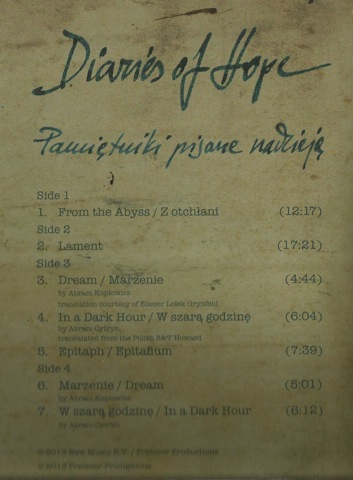 Diaries of Hope
Pamiętniki pisane nadzieją
Side 1
1. From the Abyss / Z otchłani (12:17)
Side 2
2. Lament (17:21)
Side 3
3. Dream / Marzenie (4:44)
by Abram Koplowicz
translation courtesy of Eliezer Lolek Grynfeld
4. In a Dark Hour / W szarą godzinę (6:04)
by Abram Cytryn,
translated from the Polish B&T Howard
5. Epitaph / Epitafium (7:39)
Side 4
6. Marzenie / Dream (5:01)
by Abram Koplowicz
7. W szarą godzinę / In a Dark Hour (6:12)
by Abram Cytryn
℗ 2013 New Music B.V. / Preisner Productions
© 2013 Preisner Productions